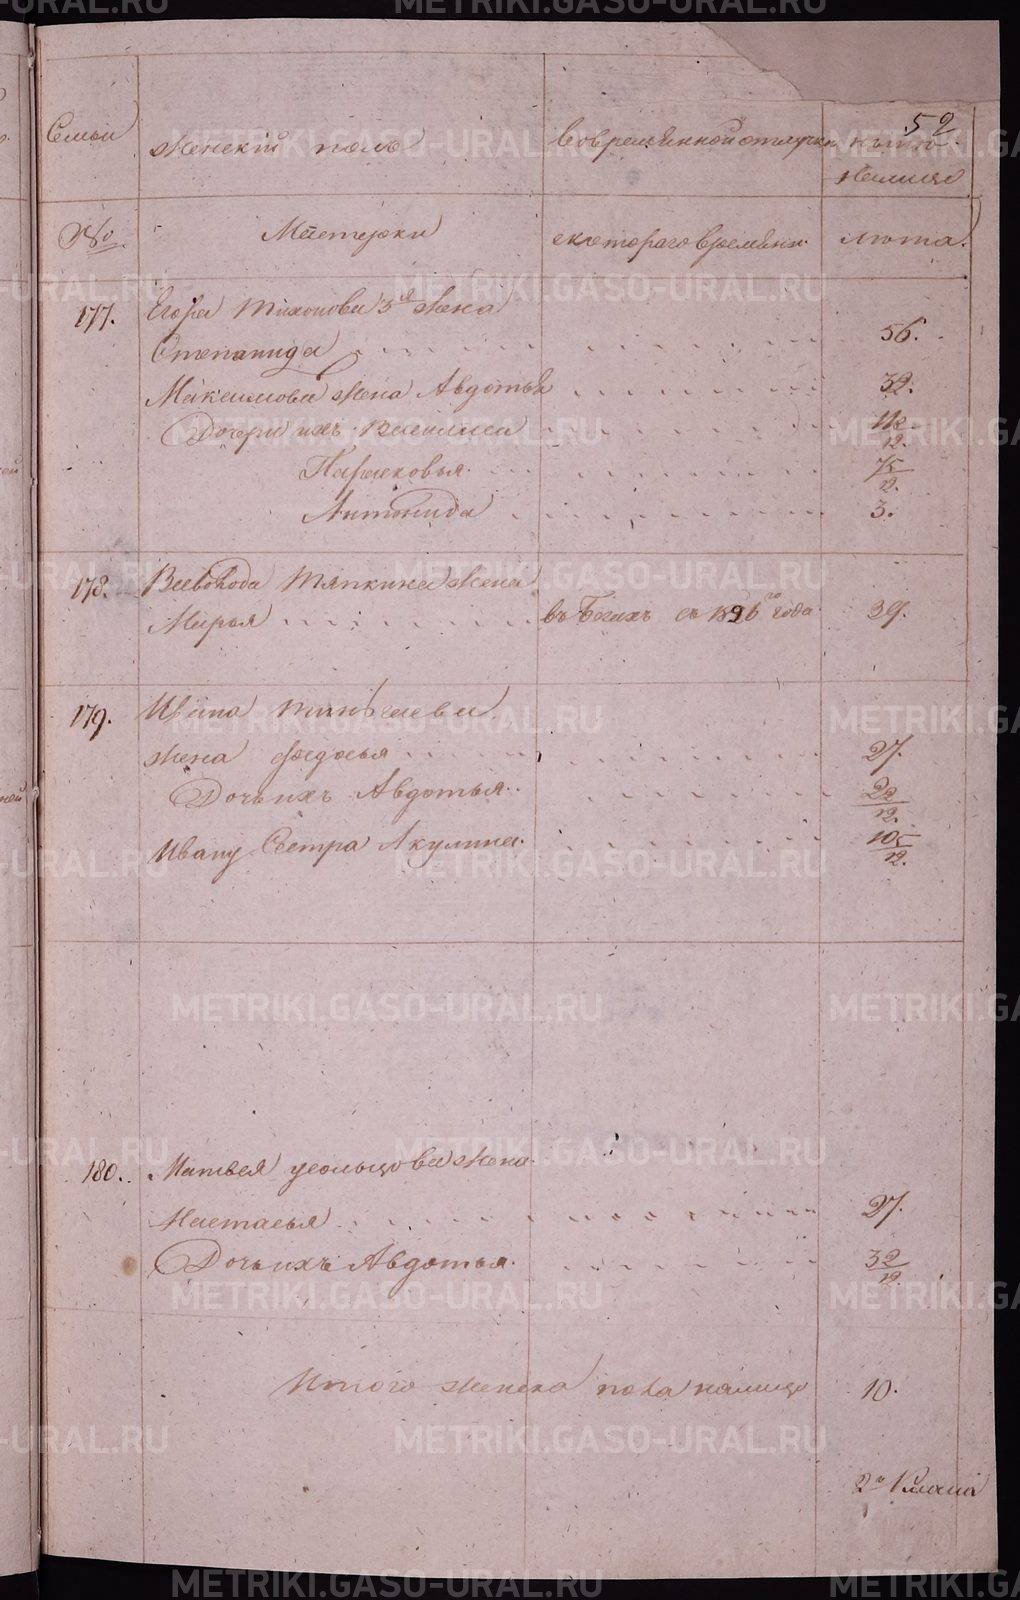 52
Семьи Женскій полъ Вовремѣнной отлучки нынѣ
налицо
№ Мастерски скотораго времѣни лѣта.
177. Егора Тихонова 3я жена
Степанида 56.
Максимова жена Авдотья 32.
Дочери ихъ Василиса 11
12.
Парасковья 7 5
12.
Антонида 3.
178. Всеволода Тяпкина жена
Марья въ бегахъ съ 1826го года 39.
179. Ивана
жена Федосья 27.
Дочь ихъ Авдотья 2 2
12.
Ивану Сестра Акулина 10 5
12.
180. Матвея усольцова жена
Настасья 27.
Дочь ихъ Авдотья 3 2
12.
Итого женска пола налицо 10.
2го Класа
METRIKI.GASO-URAL.RU